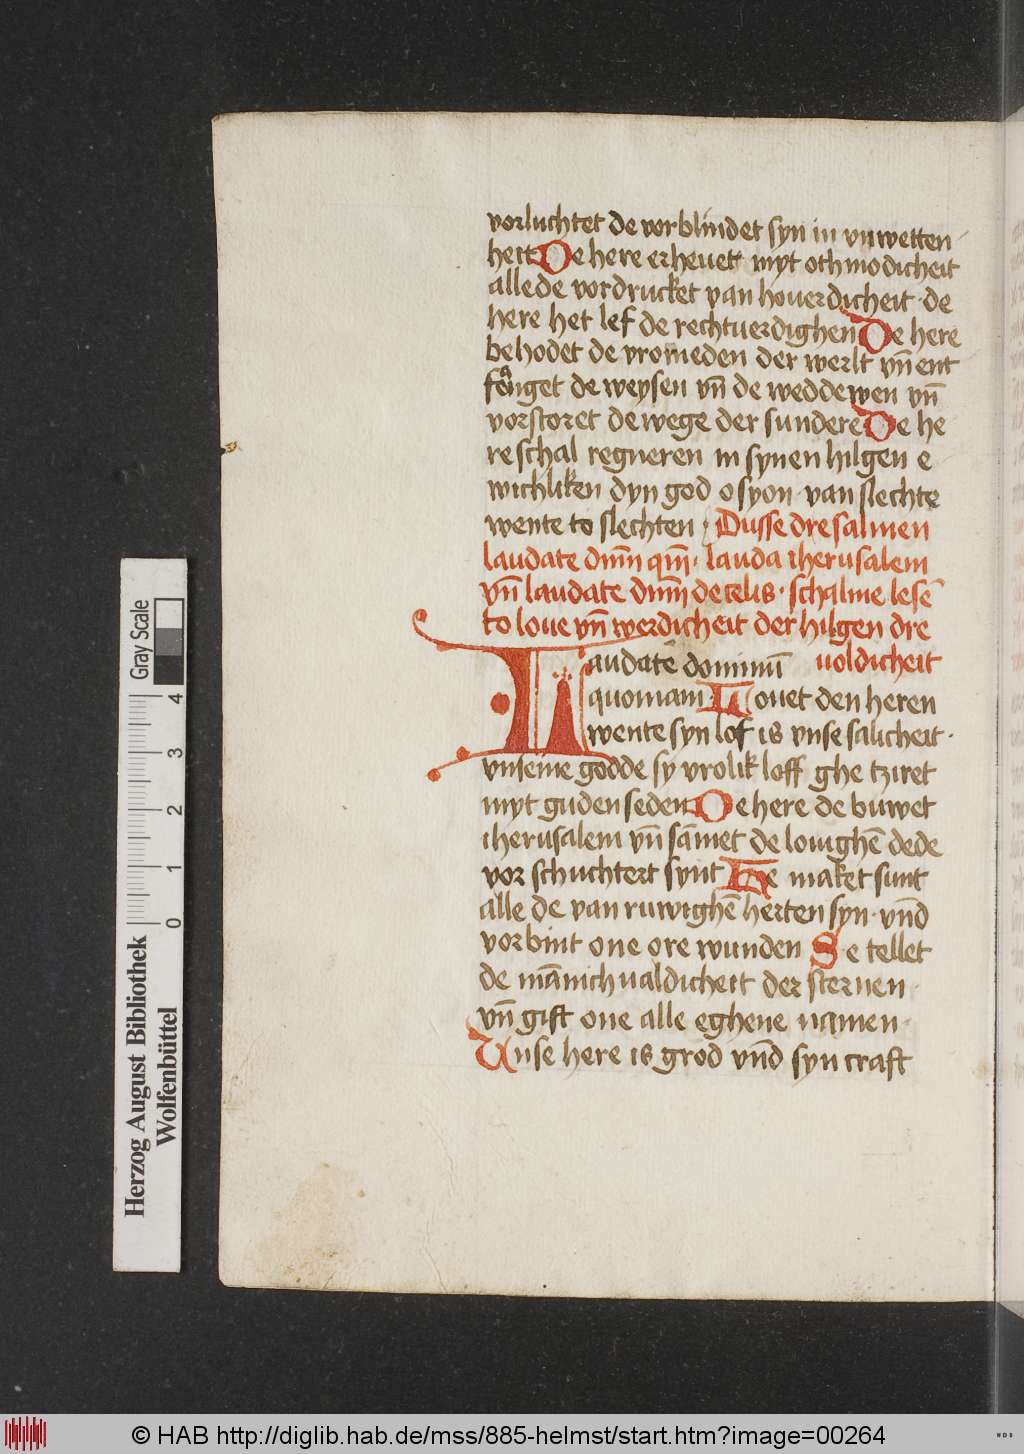 vorluchtet de vorblindet syn in vnwetten
heit De here erheuet myt othmodicheit
alle de vordrucket van houerdicheit · de
here het lef de rechtuerdighen De here
behodet de vromeden der werlt vn̄ ent
fanget de weysen vn̄ de weddewen vn̄
vorstoret de wege der sundere De he
re schal regneren in synen hilgen e
wichliken dyn god o syon · van slechte
wente to slechten · Dusse dre salmen
laudate dnm̄ qm̄ · lauda iherusalem
vn̄ laudate dnm̄ de celis · schalme lesē
to loue vn̄ werdicheit der hilgen dre
uoldicheit
Laudate dominū
quoniam · Louet den heren
wente syn lof is vnse salicheit ·
vnseme godde sy vrolik loff ghe tziret
myt guden seden De here de buwet
iherusalem vn̄ sāmet de louighē dede
vor schuchtert synt He maket sunt
alle de van ruwighē herten syn · vn̄d
vorbint one ore wunden Se tellet
de mānichualdicheit der sternen
vn̄ gift one alle eghene namen ·
Vnse here is grod vn̄d syn craft
Herzog August Bibliothek
Wolfenbüttel
Gray Scale
0 1 2 3 4
© HAB http://diglib.hab.de/mss/885-helmst/start.htm?image=00264